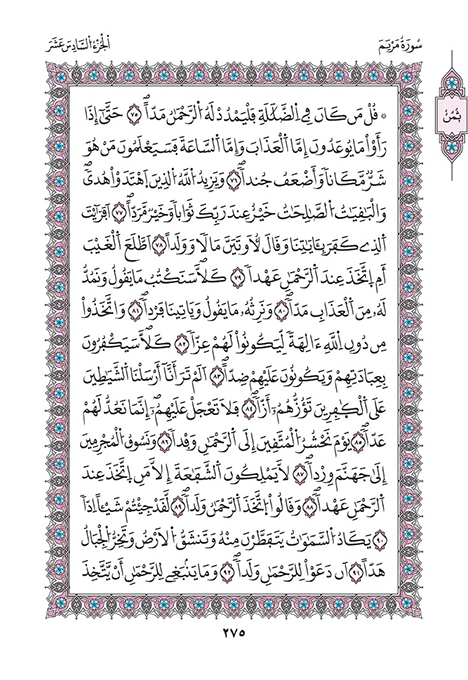 سُورَةُ مَرْيَمَ
اَلْجُزْءُ اُلسَّادِسَ عَشَرَ
ثُمُنٌ
* قُلْ مَن كَانَ فِے اِ۬لضَّلَٰلَةِ فَلْيَمْدُدْ لَهُ اُ۬لرَّحْمَٰنُ مَدّاًۖ ٧٥ حَتَّيٰٓ إِذَا
رَأَوْاْ مَا يُوعَدُونَ إِمَّا اَ۬لْعَذَابَ وَإِمَّا اَ۬لسَّاعَةَ فَسَيَعْلَمُونَ مَنْ هُوَ
شَرّٞ مَّكَاناٗ وَأَضْعَفُ جُنداٗۖ ٧٦ وَيَزِيدُ اُ۬للَّهُ اُ۬لذِينَ اَ۪هْتَدَوْاْ هُديٗۖ
وَالْبَٰقِيَٰتُ اُ۬لصَّٰلِحَٰتُ خَيْرٌ عِندَ رَبِّكَ ثَوَاباٗ وَخَيْرٞ مَّرَدّاًۖ ٧٧ اَفَرَٰٓيْتَ
اَ۬لذِے كَفَرَ بِـَٔايَٰتِنَا وَقَالَ لَأُوتَيَنَّ مَالاٗ وَوَلَداًۖ ٧٨ اَطَّلَعَ اَ۬لْغَيْبَ
أَمِ اِ۪تَّخَذَ عِندَ اَ۬لرَّحْمَٰنِ عَهْداٗۖ ٧٩ كَلَّاۖ سَنَكْتُبُ مَا يَقُولُ وَنَمُدُّ
لَهُۥ مِنَ اَ۬لْعَذَابِ مَدّاٗۖ ٨٠ وَنَرِثُهُۥ مَا يَقُولُ وَيَاتِينَا فَرْداٗۖ ٨١ وَاتَّخَذُواْ
مِن دُونِ اِ۬للَّهِ ءَالِهَةٗ لِّيَكُونُواْ لَهُمْ عِزّاٗۖ ٨٢ كَلَّاۖ سَيَكْفُرُونَ
بِعِبَادَتِهِمْ وَيَكُونُونَ عَلَيْهِمْ ضِدّاًۖ ٨٣ اَلَمْ تَرَ أَنَّآ أَرْسَلْنَا اَ۬لشَّيَٰطِينَ
عَلَي اَ۬لْكٰ۪فِرِينَ تَؤُزُّهُمُۥٓ أَزّاٗۖ ٨٤ فَلَا تَعْجَلْ عَلَيْهِمُۥٓ إِنَّمَا نَعُدُّ لَهُمْ
عَدّاٗۖ ٨٥ يَوْمَ نَحْشُرُ اُ۬لْمُتَّقِينَ إِلَي اَ۬لرَّحْمَٰنِ وَفْداٗۖ ٨٦ وَنَسُوقُ اُ۬لْمُجْرِمِينَ
إِلَيٰ جَهَنَّمَ وِرْداٗۖ ٨٧ لَّا يَمْلِكُونَ اَ۬لشَّفَٰعَةَ إِلَّا مَنِ اِ۪تَّخَذَ عِندَ
اَ۬لرَّحْمَٰنِ عَهْداٗۖ ٨٨ وَقَالُواْ اُ۪تَّخَذَ اَ۬لرَّحْمَٰنُ وَلَداٗۖ ٨٩ لَّقَدْ جِئْتُمْ شَيْـٔاً اِدّاٗۖ
٩٠ يَكَادُ اُ۬لسَّمَٰوَٰتُ يَتَفَطَّرْنَ مِنْهُ وَتَنشَقُّ اُ۬لَارْضُ وَتَخِرُّ اُ۬لْجِبَالُ
هَدّاًۖ ٩١ اَن دَعَوْاْ لِلرَّحْمَٰنِ وَلَداٗۖ ٩٢ وَمَا يَنۢبَغِے لِلرَّحْمَٰنِ أَنْ يَّتَّخِذَ
٢٧٥